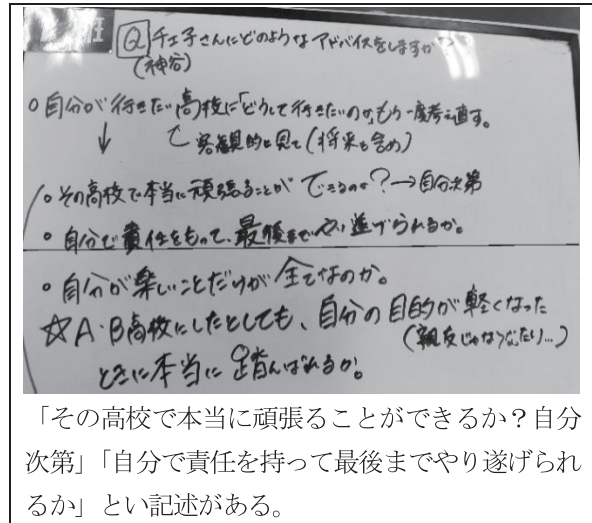 班 Q 千工子さんにどのようなアドバイスをしますか
(神谷)
○自分が行きたい高校に「どうして行きたいのか」もう一度考え直す。
客観的に見て(将来も含め)
○その高校で本当に頑張ることができるのか?→自分次第
○自分で責任をもって、最後までやり遂げられるか。
○自分が楽しいことだけが全てなのか。
☆A・B高校にしたとしても、自分の目的が軽くなった
(親友じゃなくなったり…)
ときに本当に踏んばれるか。
「その高校で本当に頑張ることができるか?自分
次第」「自分で責任を持って最後までやり遂げられ
るか」とい記述がある。